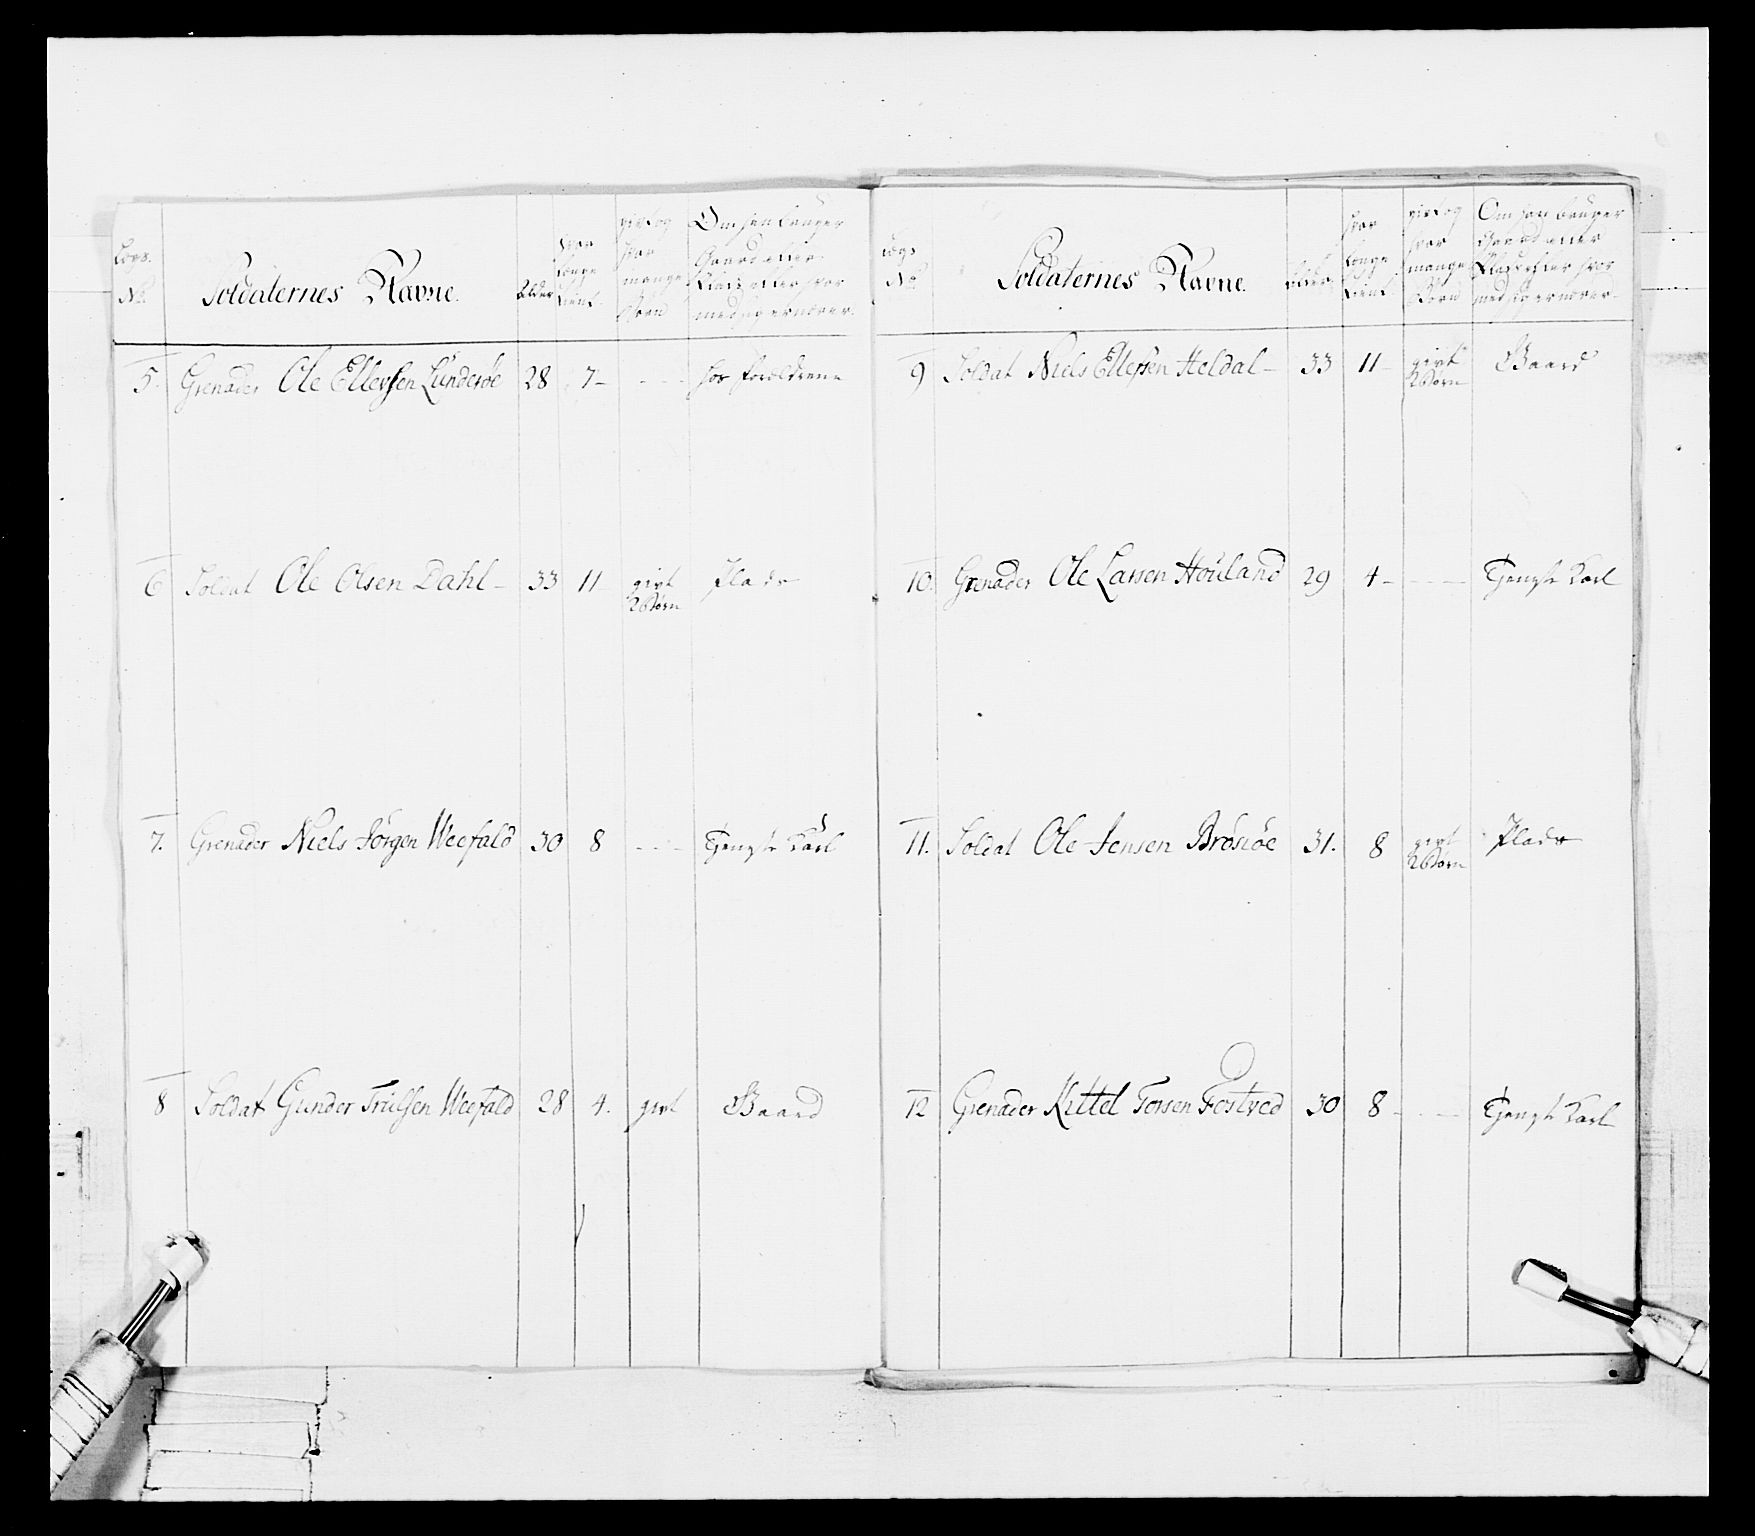 Lægs No. Soldaternes Navne. Alder hvor længe tient. givt og hvor mange Børn Om han bruger Gaard eller Plads eller hvor med sig ernærer.
5. Grenader Ole Ellefsen Lunderöe 28 7 – - - - hos Forældrene
6 Soldat Ole Olsen Dahl – 33 11 givt 2 Börn Plads
7. Grenader Niels Jörgen Weefald 30 8 - - - Tjeneste Karl
8 Soldat Gunder Trulsen Weefald 28 4. givt Gaard
Lægs No Soldaternes Navne Alder. hvor længe tient. givt og hvor mange Börn Om han bruger Gaard eller Plads eller hvor med sig ernærer.
9 Soldat Niels Ellefsen Heldal – 33 11 – givt 2 Börn Gaard
10. Grenader Ole Larsen Houland 29 4 – - - - Tjeneste Karl
11. Soldat Ole Jensen Brösiöe 31. 8 givt 2 Börn Plads
12 Grenader Kittel Torsen Fostved 30 8 - - - Tjeneste Karl